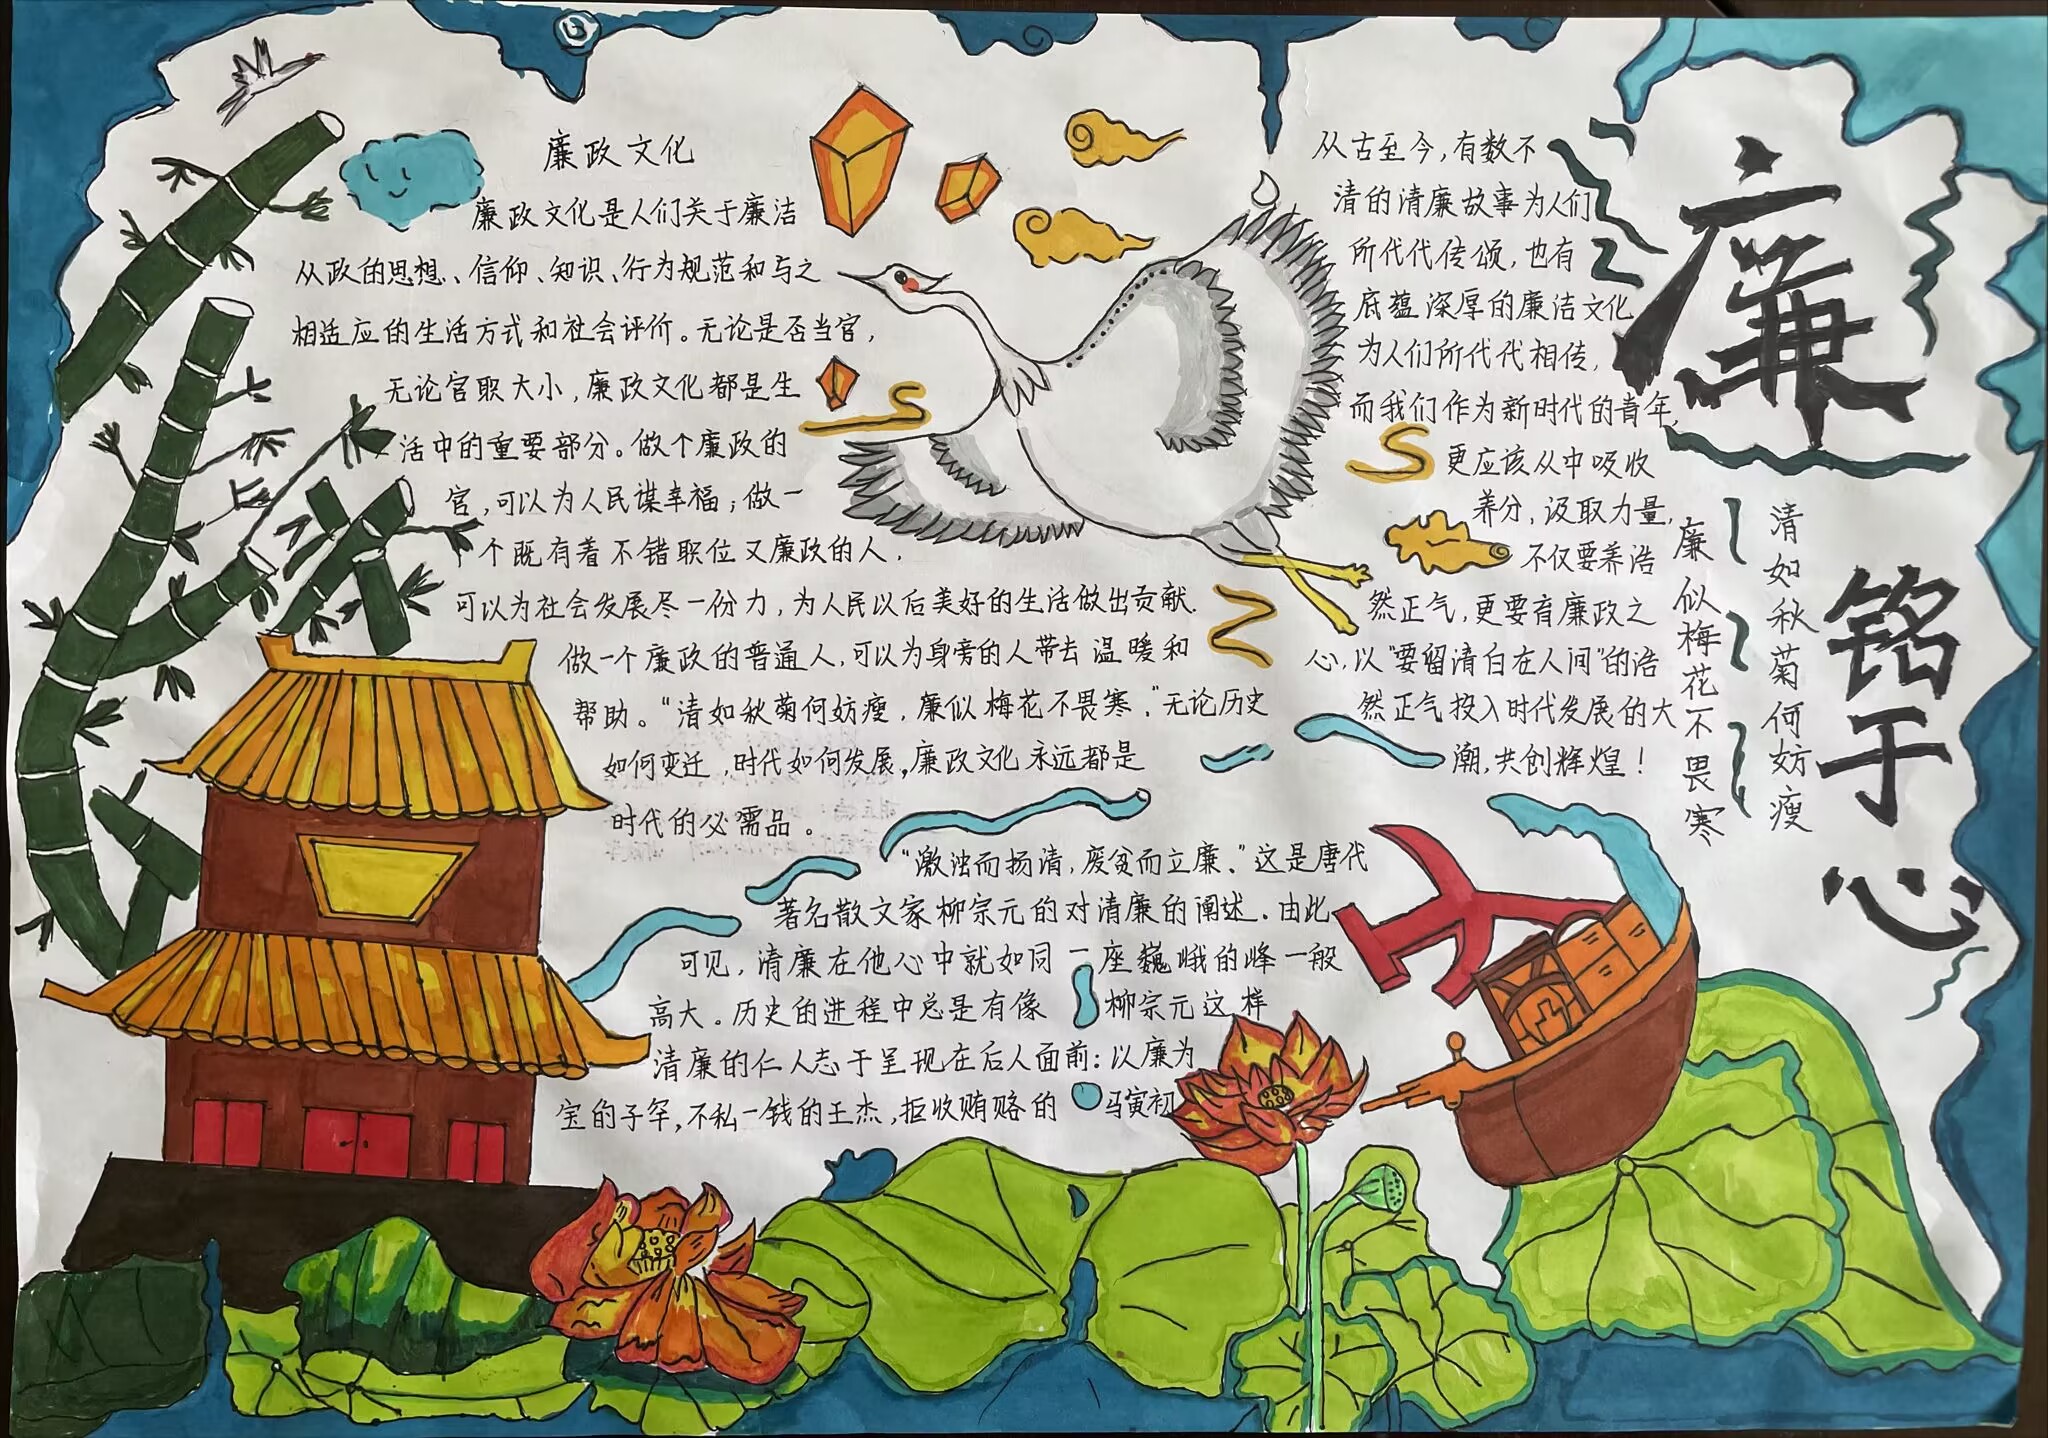 廉政文化
廉政文化是人们关于廉洁
从政的思想、信仰、知识、行为规范和与之
相适应的生活方式和社会评价。无论是否当官，
无论官职大小，廉政文化都是生
活中的重要部分。做个廉政的
官，可以为人民谋幸福；做一
个既有着不错职位又廉政的人，
可以为社会发展尽一份力，为人民以后美好的生活做出贡献.
做一个廉政的普通人，可以为身旁的人带去温暖和
帮助。“清如秋菊何妨瘦，廉似梅花不畏寒，”无论历史
如何变迁，时代如何发展，廉政文化永远都是
时代的必需品。
“激浊而扬清，废贫而立廉。”这是唐代
著名散文家柳宗元的对清廉的阐述。由此
可见，清廉在他心中就如同一座巍峨的峰一般
高大。历史的进程中总是有像柳宗元这样
清廉的仁人志于呈现在后人面前：以廉为
宝的子罕，不私一钱的王杰，拒收贿赂的马寅初
从古至今，有数不
清的清廉故事为人们
所代代传颂，也有
底蕴深厚的廉洁文化
为人们所代代相传，
而我们作为新时代的青年，
更应该从中吸收
养分，汲取力量，
不仅要养浩
然正气，更要育廉政之
心，以“要留清白在人间”的浩
然正气投入时代发展的大
潮，共创辉煌！
廉
铭于心
清如秋菊何妨瘦
廉似梅花不畏寒